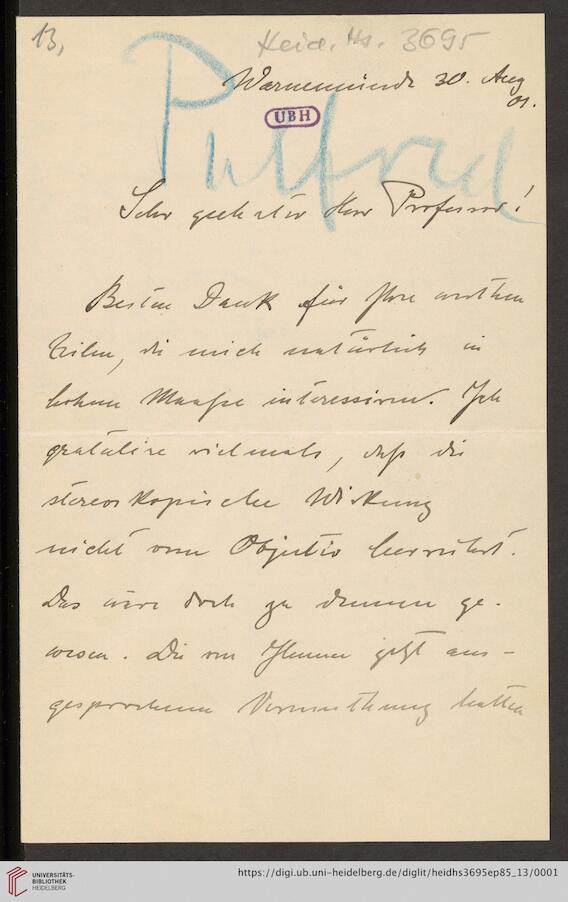 13,
Heid. Hs. 3695
Warnemünde 30. Aug
01.
UBH
Pulfrich
Sehr geehrter Herr Professor!
Besten Dank für Ihre werthen
Zeilen, die mich natürlich in
hohem Maaße interessiren. Ich
gratulire vielmals, daß die
stereoskopische Wirkung
nicht vom Objectiv herrührt.
Das wäre doch zu dumm ge-
wesen. Die von Ihnen jetzt aus-
gesprochene Vermuthung hatten
UNIVERSITÄTS-
BIBLIOTHEK
HEIDELBERG
https://digi.ub.uni-heidelberg.de/diglit/heidhs3695ep85_13/0001